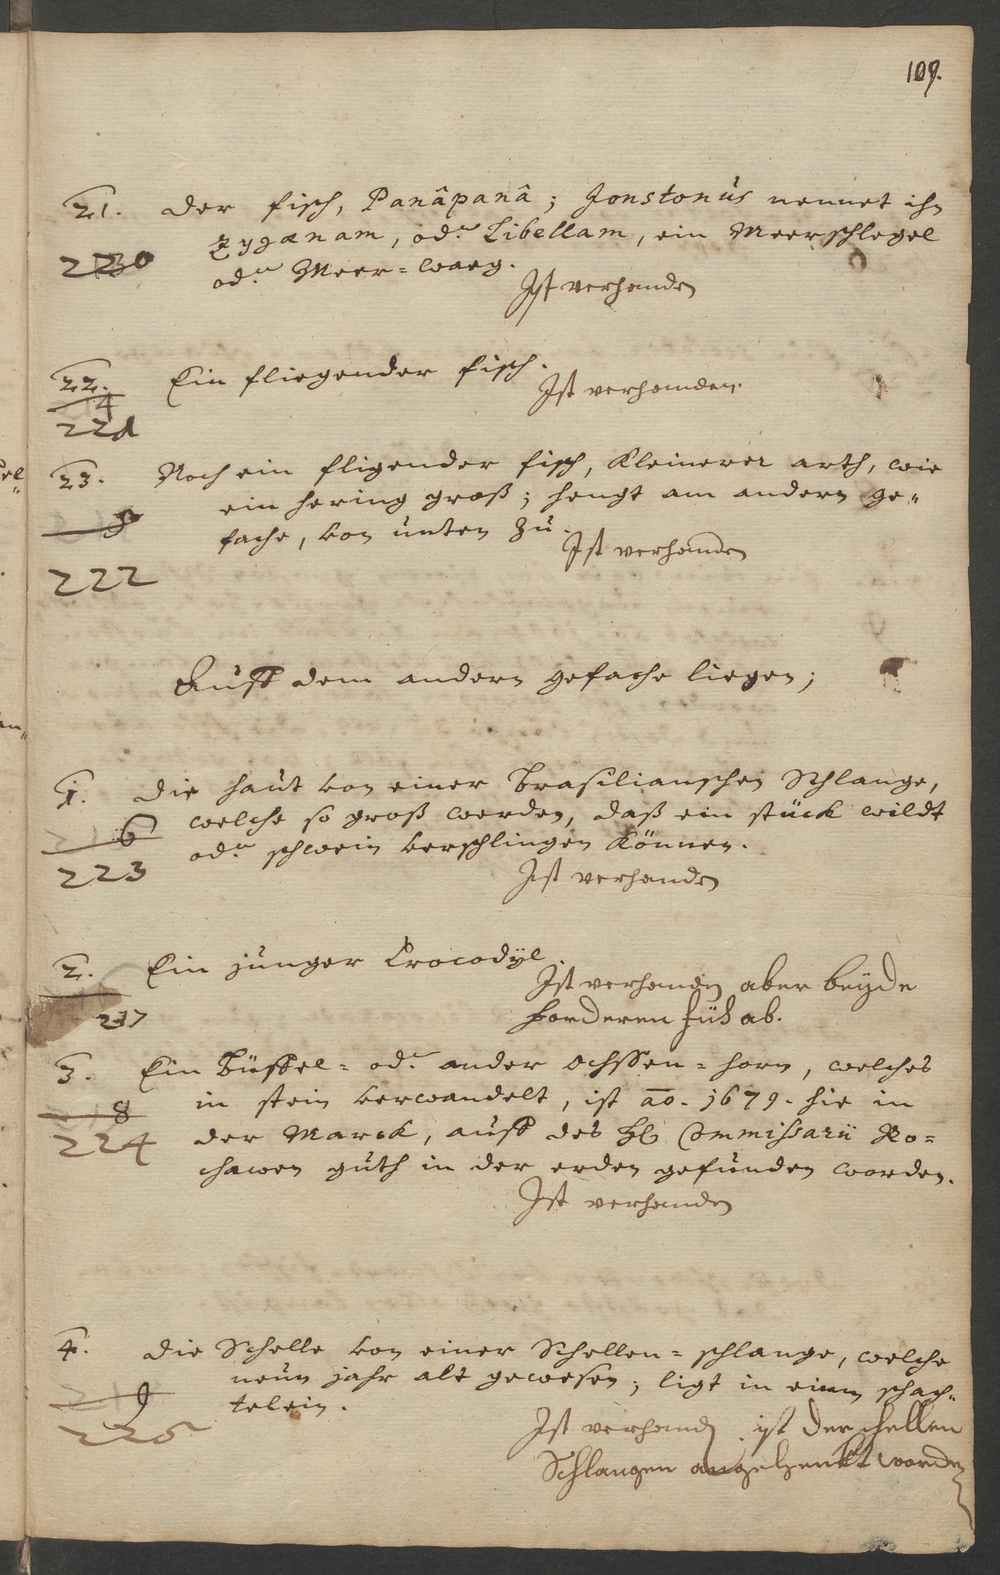 109.
21. Der fisch, Panâpanâ; Jonstonús nennet ihn
Zygænam, od. Libellam, ein Meerschlegel
230
od. Meer-waag.
Ist verhanden
22. Ein fliegender fisch.
Ist verhanden.
4
221
23. Noch ein fligender fisch, Kleinerer arth, wie
ein hering groß; hengt am andern ge-
fache, von unten zu.
Ist verhanden
222
Auff dem andern gefache liegen;
1. Die haut von einer Brasilianschen Schlange,
welche so groß werden, daß ein stück wildt
6
od. schwein verschlingen Können.
223
Ist verhanden
2. Ein junger Crocodÿl.
Ist verhanden aber beÿde
217
forderen füß ab.
3. Ein Büffel- od. ander ochssen-horn, welches
in stein verwandelt, ist ao. 1679. hie in
8
224
der Marck, auff des H. Commissarii Ro-
chawen guth in der erden gefunden worden.
Ist verhanden
4. Die Schelle von einer Schellen-schlange, welche
neun jahr alt gewesen; ligt in einem schach-
9
telein.
225
Ist verhand. ist der schellen
Schlangen angehenckt worden